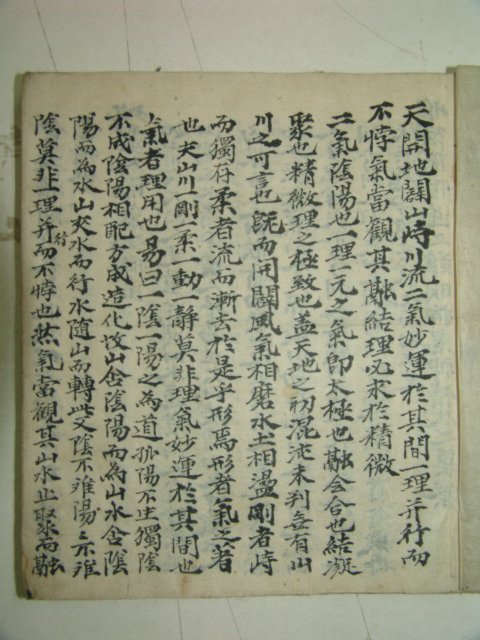 天開地闢山峙川流二氣妙運於其間一理并行而
不悖氣當觀其融結理必求於精微
二氣陰陽也一理一元之氣即太極也融會合也結凝
聚也精微理之極致也盖天地之初混沌未判無有山
川之可言也旣而開闢風氣相磨水土相盪剛者峙
而獨存柔者流而漸去於是乎形焉形者氣之著
也夫山川一剛一柔一動一靜莫非理氣妙運於其間也
氣者理用也易曰一陰一陽之為道孤陽不生獨陰
不成陰陽相配方成造化故山含陰陽而為山水含陰
陽而為水山夾水而行水随山而轉此又陰不难陽〻亦难
陰莫非一理并行而不悖也然氣當觀其山水止聚而融